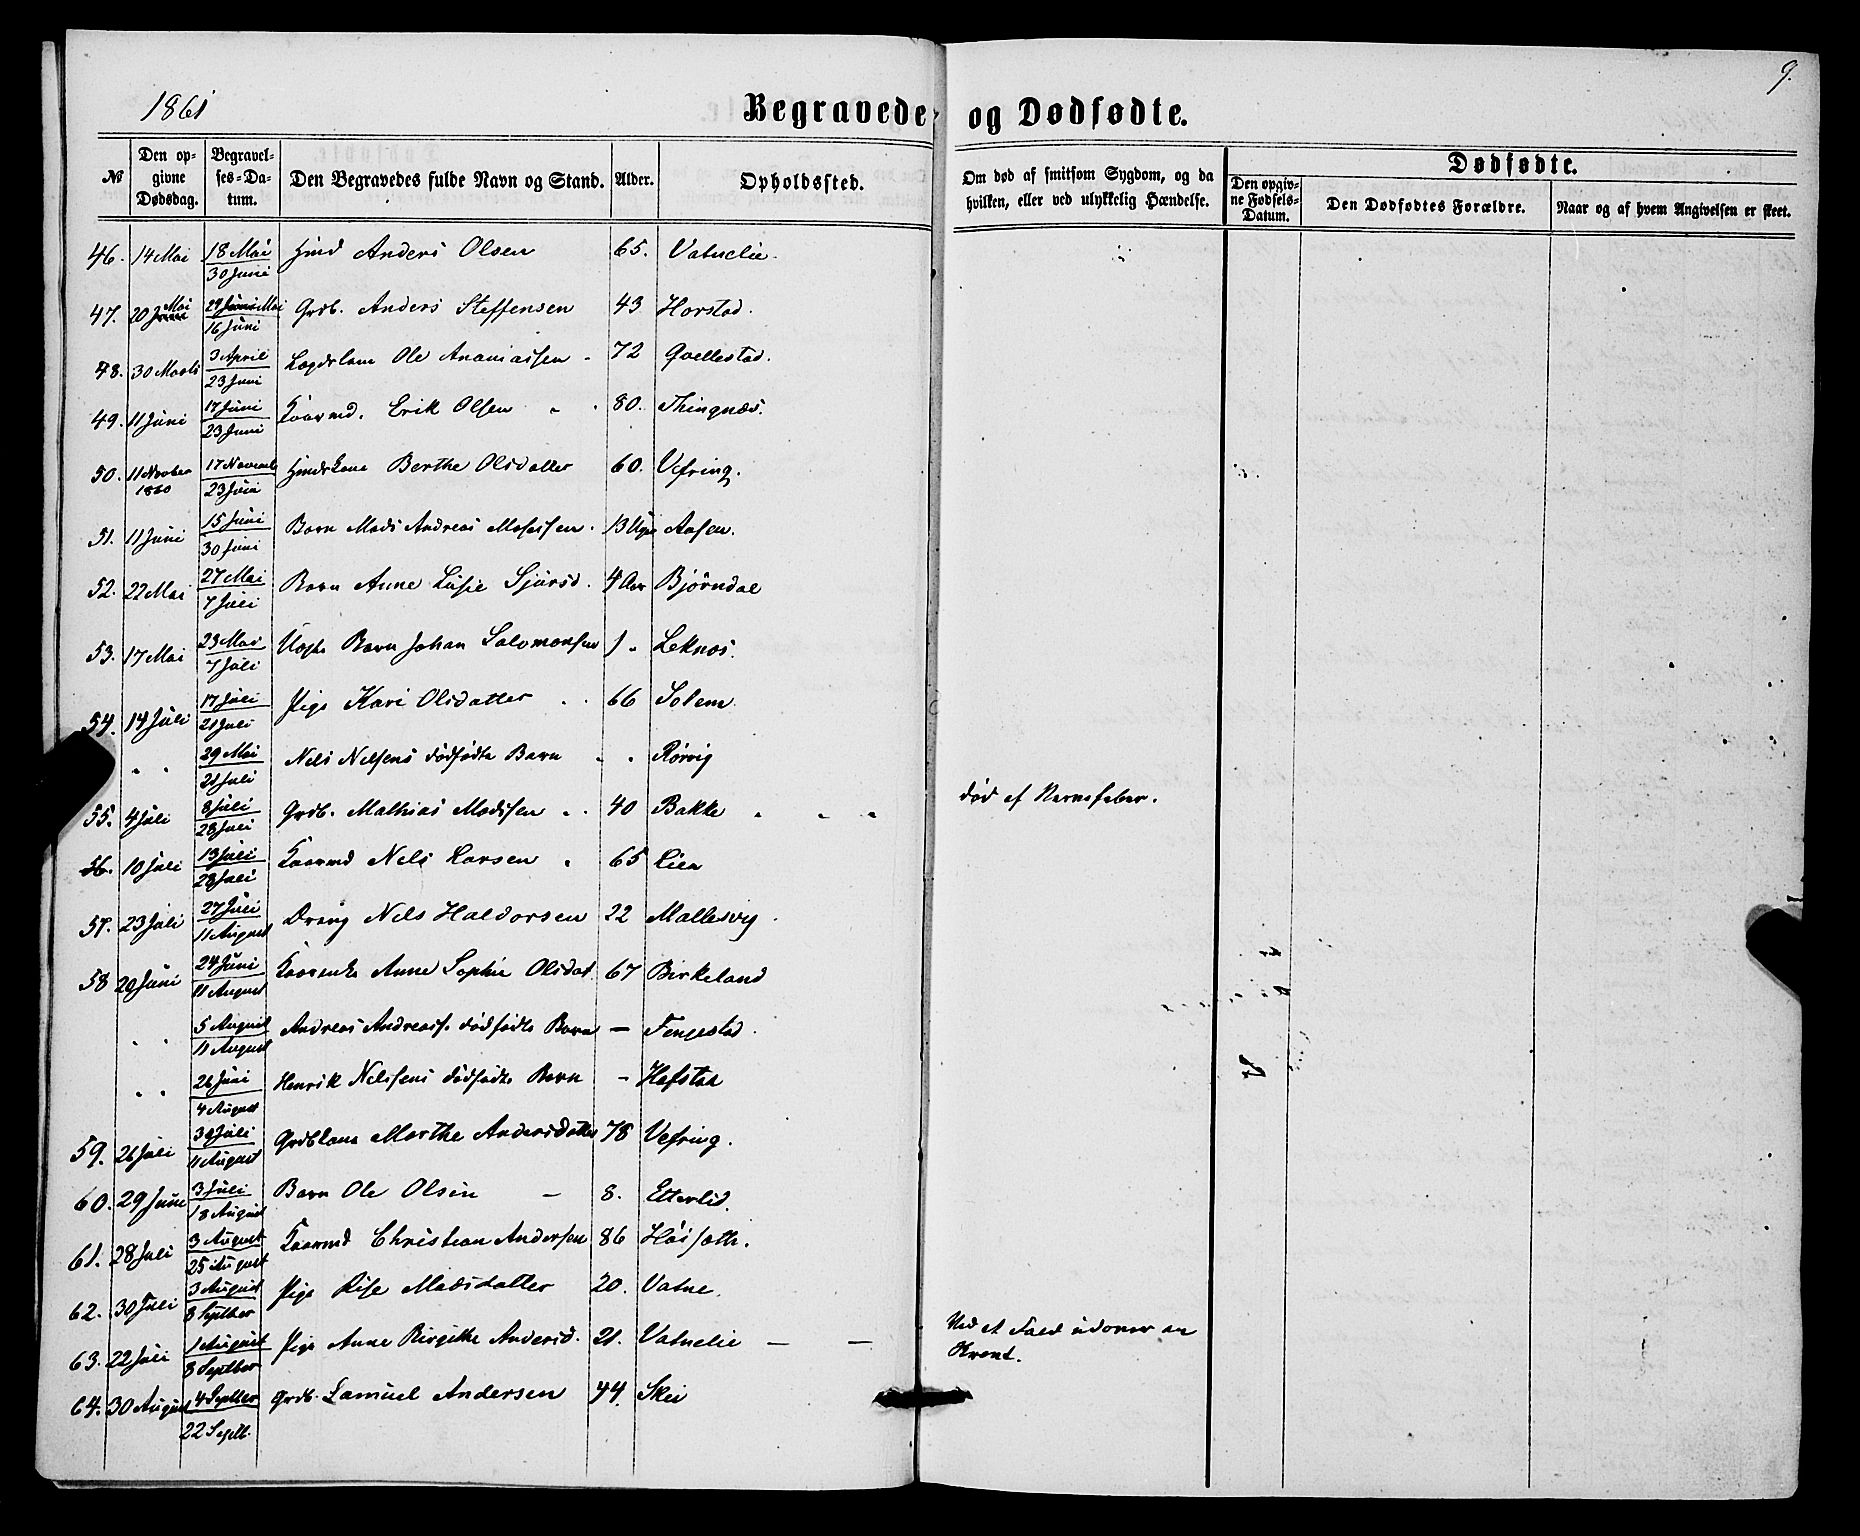 1861
Begravede og Dødfødte.
9.
No
Den opgivne Dødsdag.
Begravelses-Datum.
Den Begravedes fulde Navn og Stand.
Alder.
Opholdssted.
Om død af smitsom Sygdom, og da hvilken, eller ved ulykkelig Hændelse.
Dødfødte.
Den opgivne Fødsels-Datum.
Den Dødfødtes Forældre.
Naar og af hvem Angivelsen er skeet.
46. 14 Mai 18 Mai 30 Juni Hmd Anders Olsen 65. Vatnelie.
47. 20 Mai 29 Mai 16 Juni Grdb. Anders Steffensen 43 Horstad.
48. 30 Marts 3 April 23 Juni Lægdslem Ole Ananiassen 72 Qvellestad.
49. 11 Juni 17 Juni 23 Juni Kaarmd. Erik Olsen 80. Thingnæs.
50. 11 November 1860 17 Novemb 23 Juni Hmds Kone Berthe Olsdatter 60. Vefring.
51. 11 Juni 15 Juni 30 Juni Barn Mads Andreas Mosessen. 13 Uger Aasen.
52. 22 Mai 27 Mai 7 Juli Barn Anne Lusie Sjursd. 4 Aar Bjørndal
53. 17 Mai 23 Mai 7 Juli Uægte Barn Johan Salomonsen 1 " Leknæs.
54. 14 Juli 17 Juli 21 Juli Pige Kari Olsdatter 66 Solem.
" " 29 Mai 21 Juli Nels Nelsens dødfødte Barn " " Rørvig
55. 4 Juli 8 Juli 28 Juli Grdb. Mathias Madssen 40 Bakke " " " død af Nervefeber.
56. 10 Juli 13 Juli 28 Juli Kaarmd Nels Larsen 65 Lien
57. 23 Juli 27 Juli 11 August Dreng Nels Haldorsen 22 Mallesvig
58 20 Juni 24 Juni 11 August Kaarenke Anne Sophie Olsdat. 67 Birkeland
" " 5 August 11 August Andreas Andreass. dødfødte Barn — Fengestad.
" " 26 Juni 4 August Henrik Nelssens dødfødte Barn - Hafstad
59. 26 Juli 30 Juli 11 August Grdbkone Marthe Andersdatter 78 Vefring.
60. 29 Juni 3 Juli 18 August Barn Ole Olsen — 8. Etterlid.
61. 28 Juli 3 August 25 August Kaarmd Christian Andersen 86 Høisæth.
62. 30 Juli 3 August 8 Septber Pige Lise Madsdatter 20. Vatne.
63. 22 Juli 1 August 8 Septber Pige Anne Birgithe Andersd. 21. Vatnelie — — Ved et Fald udover en
64. 30 August 4 Septber 22 Septb. Grdb. Samuel Andersen 44. Skei